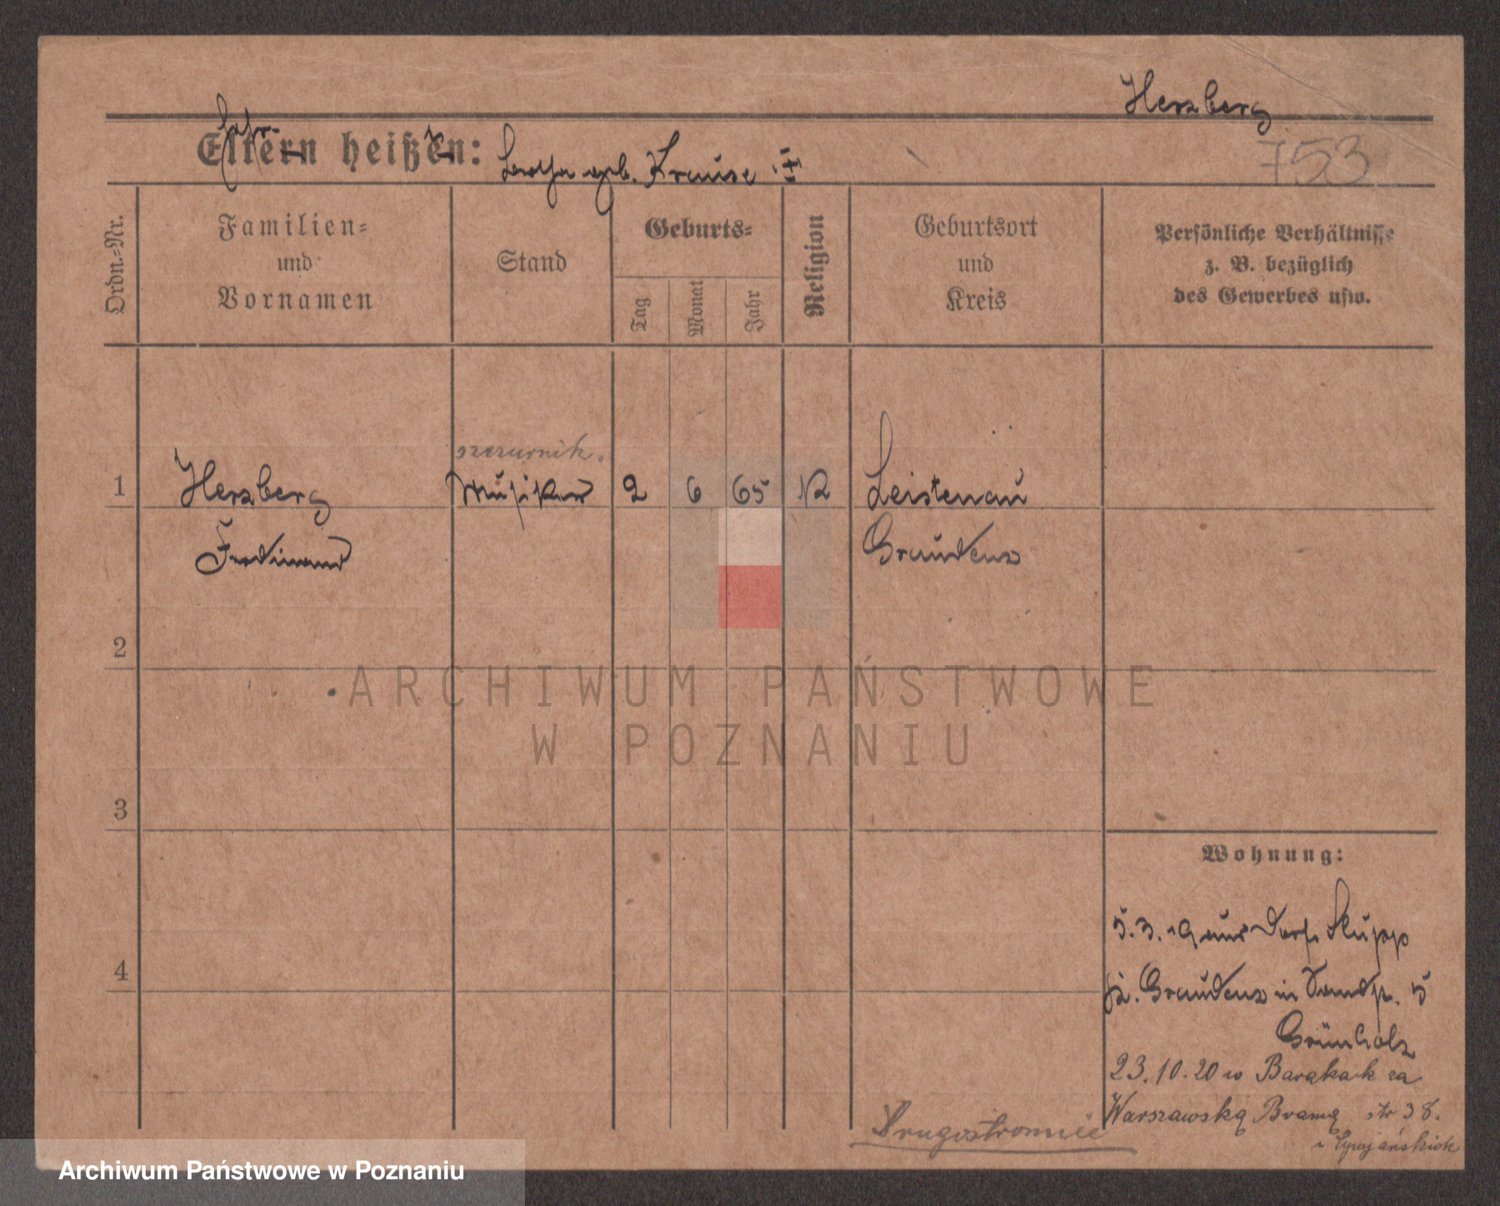 Herzberg
Ehefr.
Eltern heißen: geb. Krause
753
Ordn.-Nr.
Familien-
und
Vornamen
Stand
Geburts-
Tag
Monat
Jahr
Religion
Geburtsort
und
Kreis
Persönliche Verhältnisse
z. B. bezüglich
des Gewerbes usw.
1
Herzberg
Ferdinand
Musiker
2
6
65
Leistenau
Graudenz
2
3
4
Wohnung:
Graudenz in
Grünholz
23.10.20 w Barakach za
Warszawską Bramą str 38.
Drugostronnie
ARCHIWUM PAŃSTWOWE
W POZNANIU
Archiwum Państwowe w Poznaniu